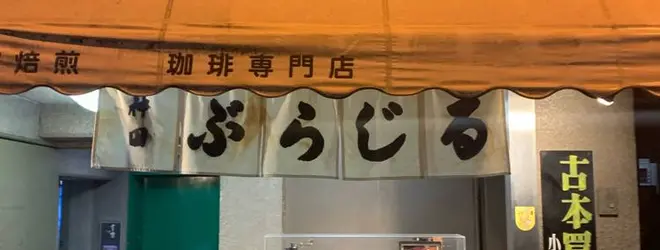 焙煎 珈琲専門店
ぶらじる
古本買
小